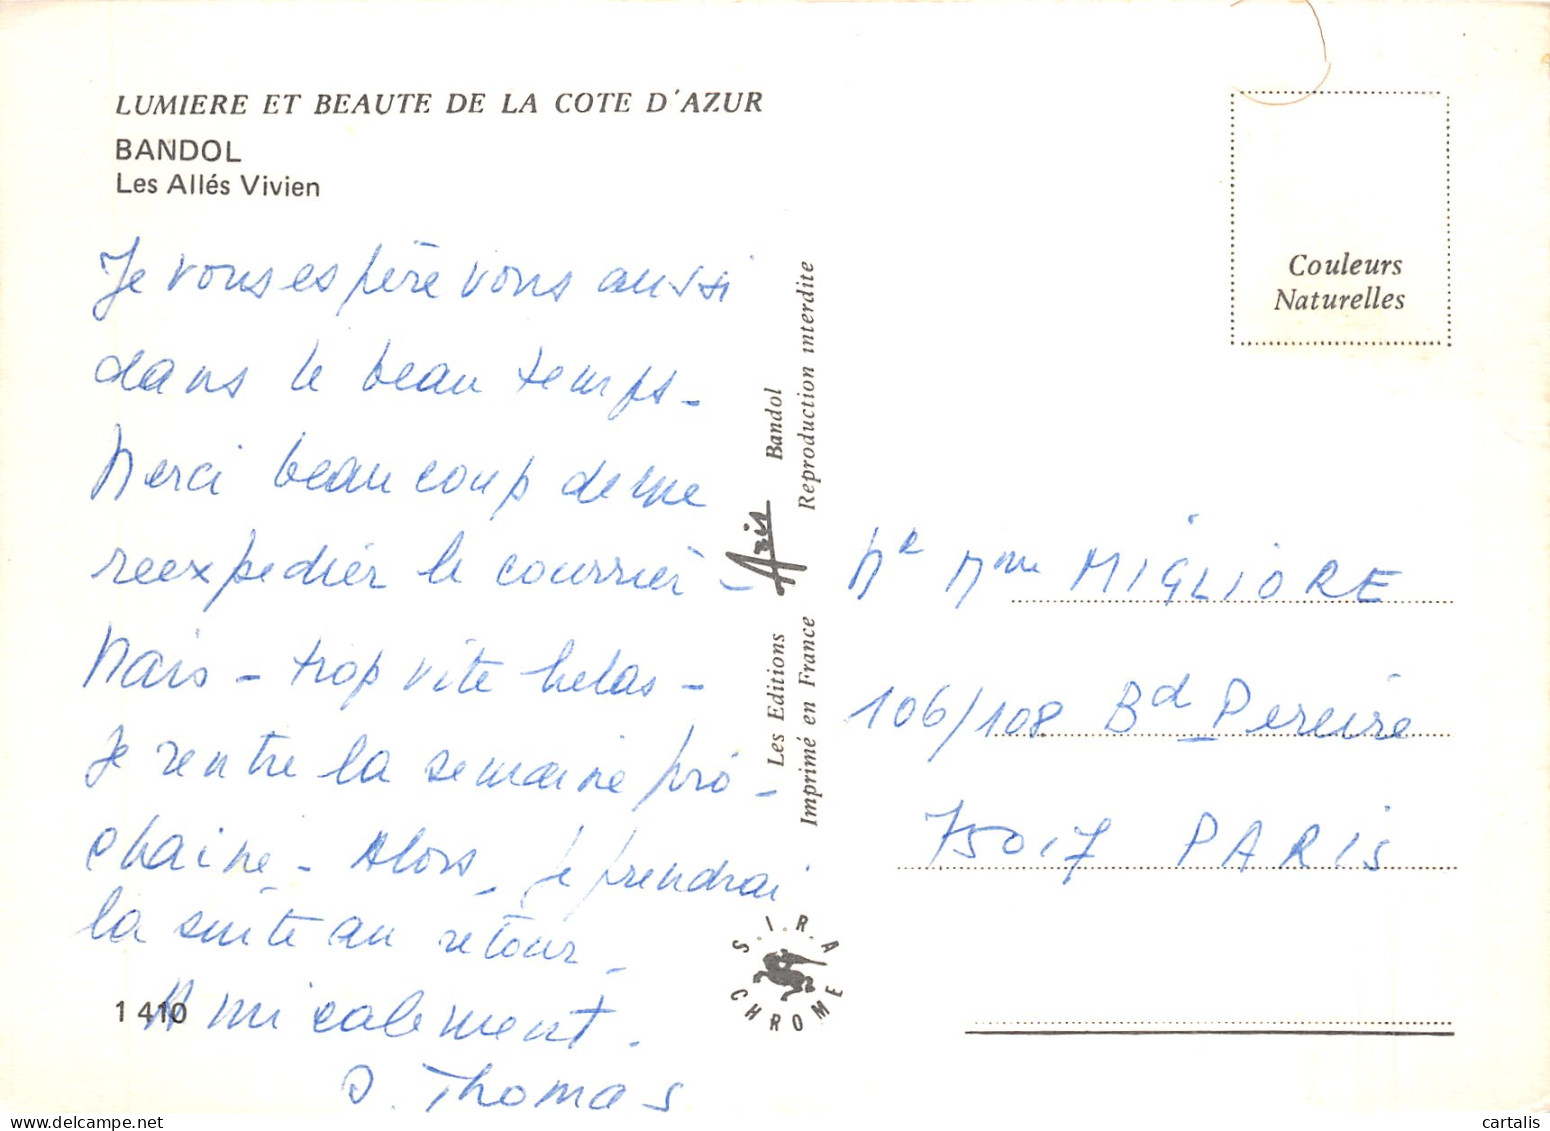 LUMIERE ET BEAUTE DE LA COTE D'AZUR
BANDOL
Les Allés Vivien
Je vous espère vous aussi
dans le beau temps -
Merci beaucoup de me
reexpedier le courrier -
Mais - trop vite helas -
Je rentre la semaine pro -
chaine - Alors - je prendrai
la suite au retour -
Amicalement.
D. Thomas
1 410
Les Editions Aris Bandol
Imprimé en France Reproduction interdite
S.I.R.A
CHROME
Couleurs
Naturelles
Mr Mme MIGLIORE
106/108 Bd Pereire
75017 PARIS
cartalis